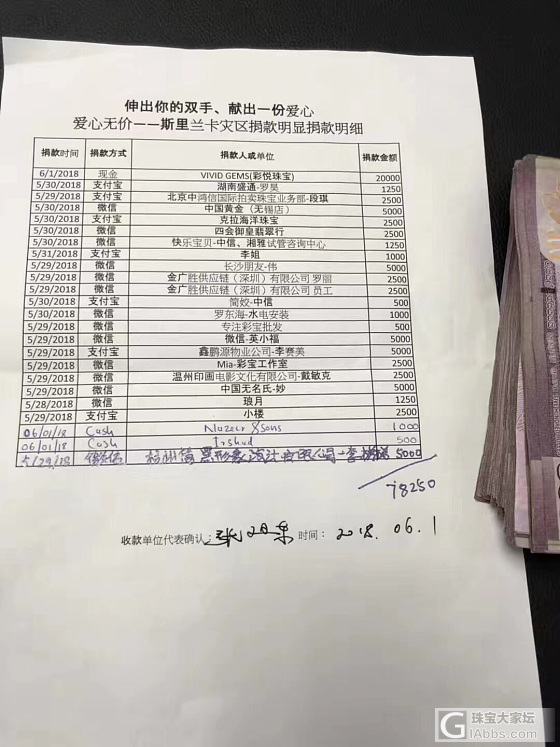 伸出你的双手、献出一份爱心
爱心无价——斯里兰卡灾区捐款明显捐款明细
捐款时间 捐款方式 捐款人或单位 捐款金额
6/1/2018 现金 VIVID GEMS(彩悦珠宝) 20000
5/30/2018 支付宝 湖南盛通-罗昊 1250
5/29/2018 支付宝 北京中鸿信国际拍卖珠宝业务部-段琪 2500
5/30/2018 微信 中国黄金（无锡店） 5000
5/30/2018 支付宝 克拉海洋珠宝 2500
5/30/2018 微信 四会御皇翡翠行 2500
5/30/2018 微信 快乐宝贝-中信、湘雅试管咨询中心 1250
5/31/2018 支付宝 李姐 1000
5/29/2018 微信 长沙朋友-伟 5000
5/29/2018 微信 金广胜供应链（深圳）有限公司 罗丽 2500
5/29/2018 微信 金广胜供应链（深圳）有限公司 员工 2500
5/30/2018 支付宝 简姣-中信 500
5/30/2018 微信 罗东海-水电安装 1000
5/29/2018 微信 专注彩宝批发 500
5/29/2018 微信 微信-英小福 5000
5/29/2018 支付宝 鑫鹏源物业公司-李赛美 5000
5/29/2018 微信 Mia-彩宝工作室 2500
5/29/2018 微信 温州印画电影文化有限公司-戴敏克 2500
5/29/2018 微信 中国无名氏-妙 5000
5/28/2018 微信 琅月 1250
5/29/2018 支付宝 小楼 2500
06/01/18 Cash Nazeer & Sons 1000
06/01/18 Cash Irshad 500
5/29/18 5000
78250
收款单位代表确认: 时间: 2018.06.1
珠宝大家坛
GIAbbs.com